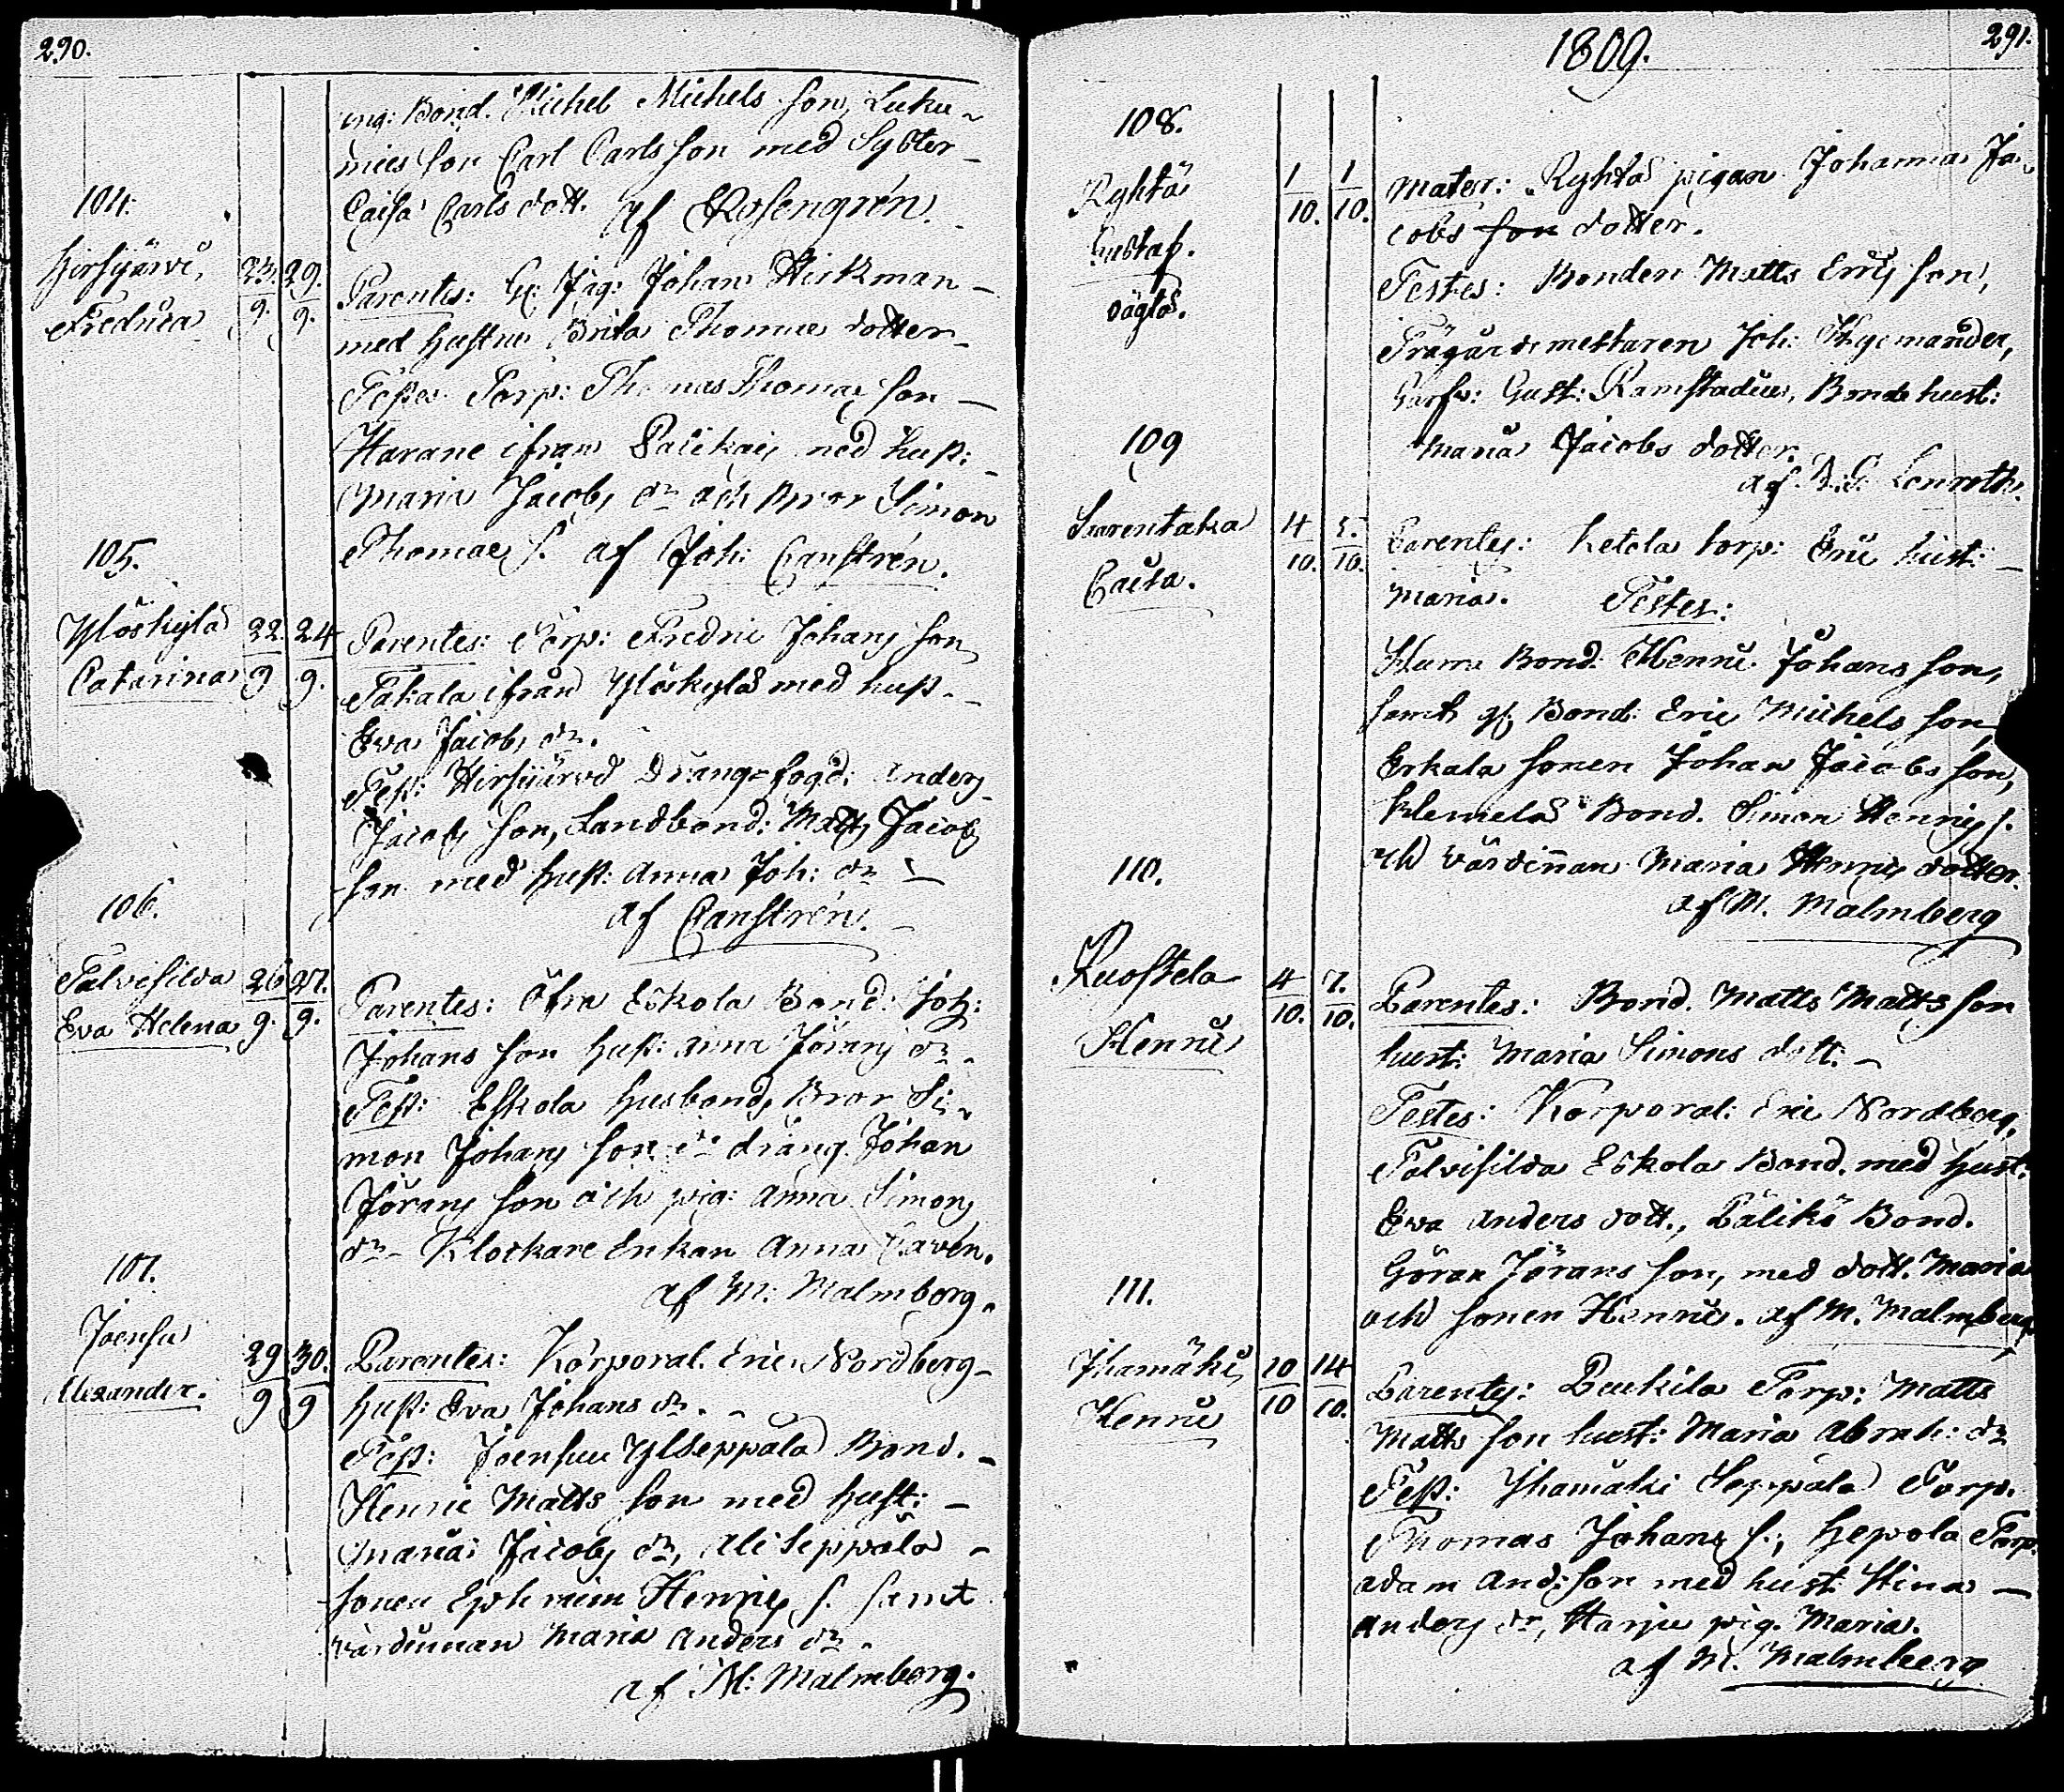 290.
ung: Bond. Michel Michels son, Luku-
mies son Carl Carls son med Syster
Caisa Carls dott. af Rosengrén.
104.
Hirsijärvi,
Fredrica
23. 29.
9. 9.
Parentes: Johan Hickman
med hustru Brita Thomae dotter
Testes: Torp: Thomas Thomae son
Harane ifrån med hust:
Maria Jacobs dr och Bror Simon
Thomae s. af Joh: Canstrén.
105.
Ylöskylä
Catarina
22. 24
9 9.
Parentes: Torp: Fredric Johans son
Takala ifrån Ylöskylä med hust
Eva Jacobs dr.
Test: Hirsijärvi Drängs fogd: Anders
Jacobs son, Landbond: Matts Jacobs
son med hust: Anna Joh: dr
af Canstrén.
106.
Talvisilda
Eva Helena
26 27.
9. 9.
Parentes: Öfra Eskola Bond: Joh:
Johans son hust: Anna Jörans dr
Test: Eskola husbond, Bror Si-
mon Johans son dr dräng Johan
Jörans son och pig: Anna Simons
dr Klockare Enkan Anna Cavén.
af M: Malmberg.
107.
Joensu
Alexander.
29 30.
9 9
Parentes: Korporal. Eric Nordberg
hust: Eva Johans dr.
Test: Joensuu Yliseppälä Bond.
Henric Matts son med hust:
Maria Jacobs dr, Aliseppälä
sonen Ephraim Henrics s. samt
värdinnan Maria Anders dr.
af M: Malmberg.
1809.
291.
108.
Ryhtä
Gustaf.
oägta.
1 1
10. 10.
Mater: Ryhtä pigan Johanna Ja-
cobs son dotter.
Testes: Bonden Matts Erics son,
Trägårds mestaren Joh: Thgemander,
Garfv: Gust: Ramstadius, Bonde hust:
Maria Jacobs dotter.
af Lenroth.
109
Saarentaka
Caisa.
4 5.
10. 10.
Parentes: Ketola torp: Eric hust:
Maria. Testes:
Bond: Henric Johans son,
samt gl: Bond: Eric Michels son,
Erkala sonen Johan Jacobs son,
Klemelä Bond. Simon Henrics s.
och värdinnan Maria Henrics dotter.
af M. Malmberg
110.
Ruostela
Henric
4 7.
10. 10.
Parentes: Bond. Matts Matts son
hust: Maria Simons dott:
Testes: Korporal: Eric Nordberg,
Talvisilda Eskola Bond. med hust.
Eva Anders dott., Pälikö Bond.
Göran Jörans son, med dott. Maria
och sonen Henric. af M. Malmberg
111.
Ihamäki,
Henric
10 14
10 10.
Parentes: Peukila Torp: Matts
Matts son hust: Maria Abrah: dr
Test: Ihamäki Seppälä Torp.
Thomas Johans s., Hepola Torp.
Adam And: son med hust: Stina
Anders dr, Harju pig. Maria.
af M. Malmberg